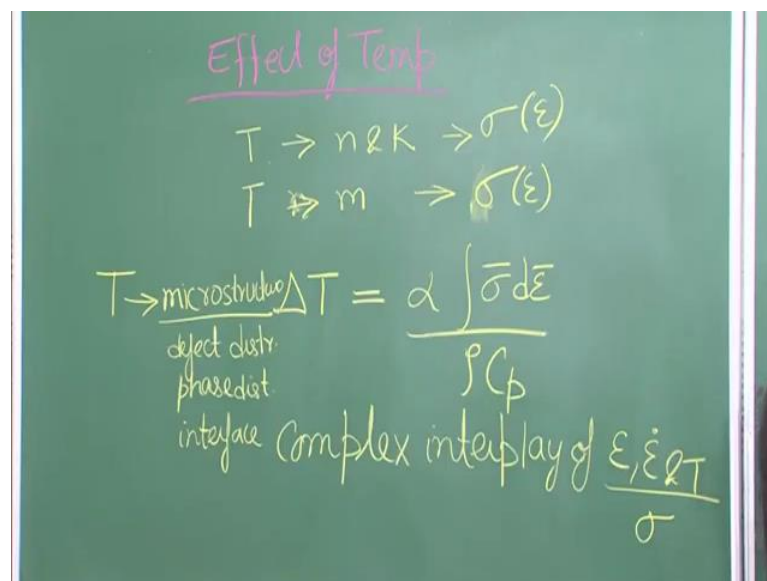 Effect of Temp
T → n & K → σ(ε)
T → m → σ(ε)
T → microstructure ΔT = α ∫ σ̄ dε̄ / ρ Cp
defect distr.
phase dist.
interface complex interplay of ε, ε̇ & T
σ